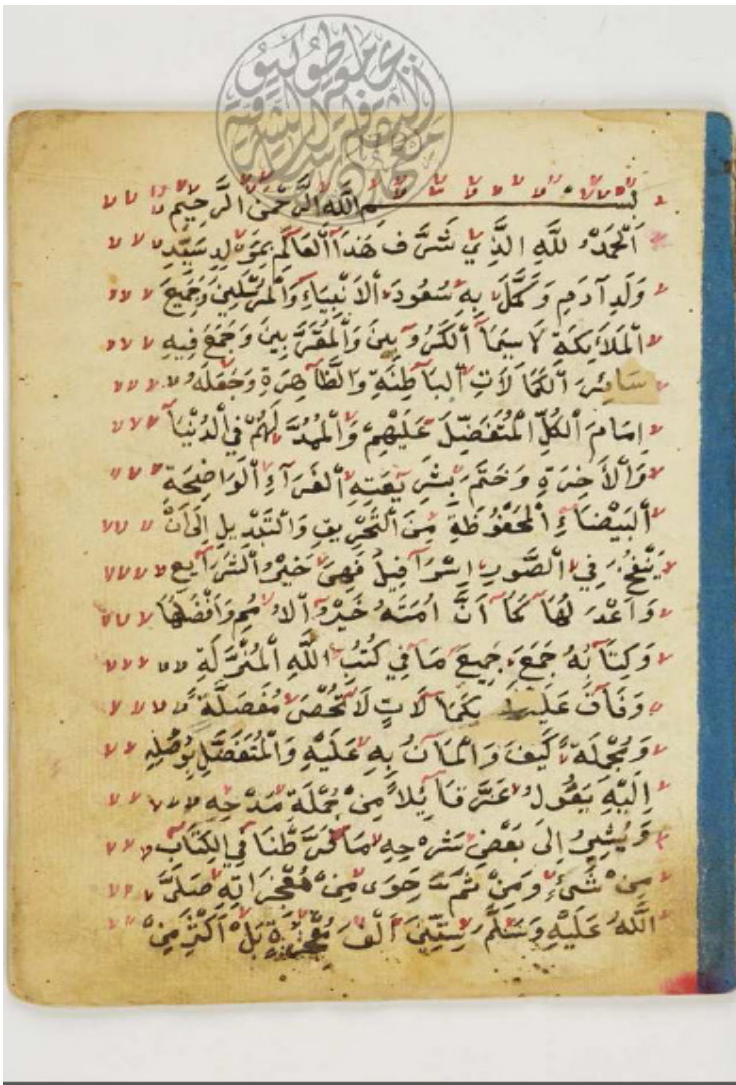 بسم الله الرحمن الرحيم
اَلْحَمْدُ لِلَّهِ الَّذِي شَرَّفَ هَذَا الْعَالَمَ بِمَوْلِدِ سَيِّدِ
وَلَدِ آدَمِ وَكَمَّلَ بِهِ سُعُودَ الْاَنْبِيَاءِ وَالْمُرْسَلِينَ وَجَمِيعِ
الْمَلَائِكَةِ لَاسِيَمَا الْكَرُوبِينَ وَالْمُقَرَّبِينَ وَجَمَعَ فِيهِ
سَائِرَ الْكَمَالَاتِ الْبَاطِنَةِ وَالظَّاهِرَةِ وَجَعَلَهُ
اِمَامَ الْكُلِّ الْمُتَفَضِّلَ عَلَيْهِمْ وَالْمُمِدَّ لَهُمْ فِي الدُّنْيَا
وَالْاَخِرَةِ وَخَتَمَ بِشَرِيعَتِهِ الْغَرَّاءِ الْوَاضِحَةِ
الْبَيْضَاءِ الْمَحْفُوظَةِ مِنَ التَّحْرِيفِ وَالتَّبْدِيلِ اِلَى اَنْ
يَنْفُخَ فِي الصُّورِ اِسْرَافِيلُ فَهِيَ خَيْرُ الشَّرَايِعِ
وَاَعْدَ لُهَا كَمَا اَنَّ اُمَتَهُ خَيْرُ الْاُمَمِ وَاَفْضَلُهَا
وَكِتَابُهُ جَمَعَ جَمِيعَ مَا فِي كُتُبِ اللَّهِ الْمُنْزَلَةِ
وَفَاقَ عَلَيْهَا بِكَمَالَاتٍ لَا تُحْصَى مُفَصَّلَةً
وَمُجْمَلَةً كَيْفَ وَالْمَانُّ بِهِ عَلَيْهِ وَالْمُتَفَضِّلِ بِوُصْلِهِ
اِلَيْهِ يَقُولُ عَزَّ قَائِلاً مِنْ جُمْلَةِ مَدْحِهِ
وَيُشِيرُ اِلَى بَعْضِ شَرْحِهِ مَا فَرَّطْنَا فِي الْكِتَابِ
مِنْ شَيْءٍ وَمِنْ ثَمَّ حَوَى مِنْ مُعْجِزَاتِهِ صَلَّى
اللَّهُ عَلَيْهِ وَسَلَّمَ سِتِّينَ اَلْفَ مُعْجِزَةٍ بَلْ اَكْثَرَ مِنْ